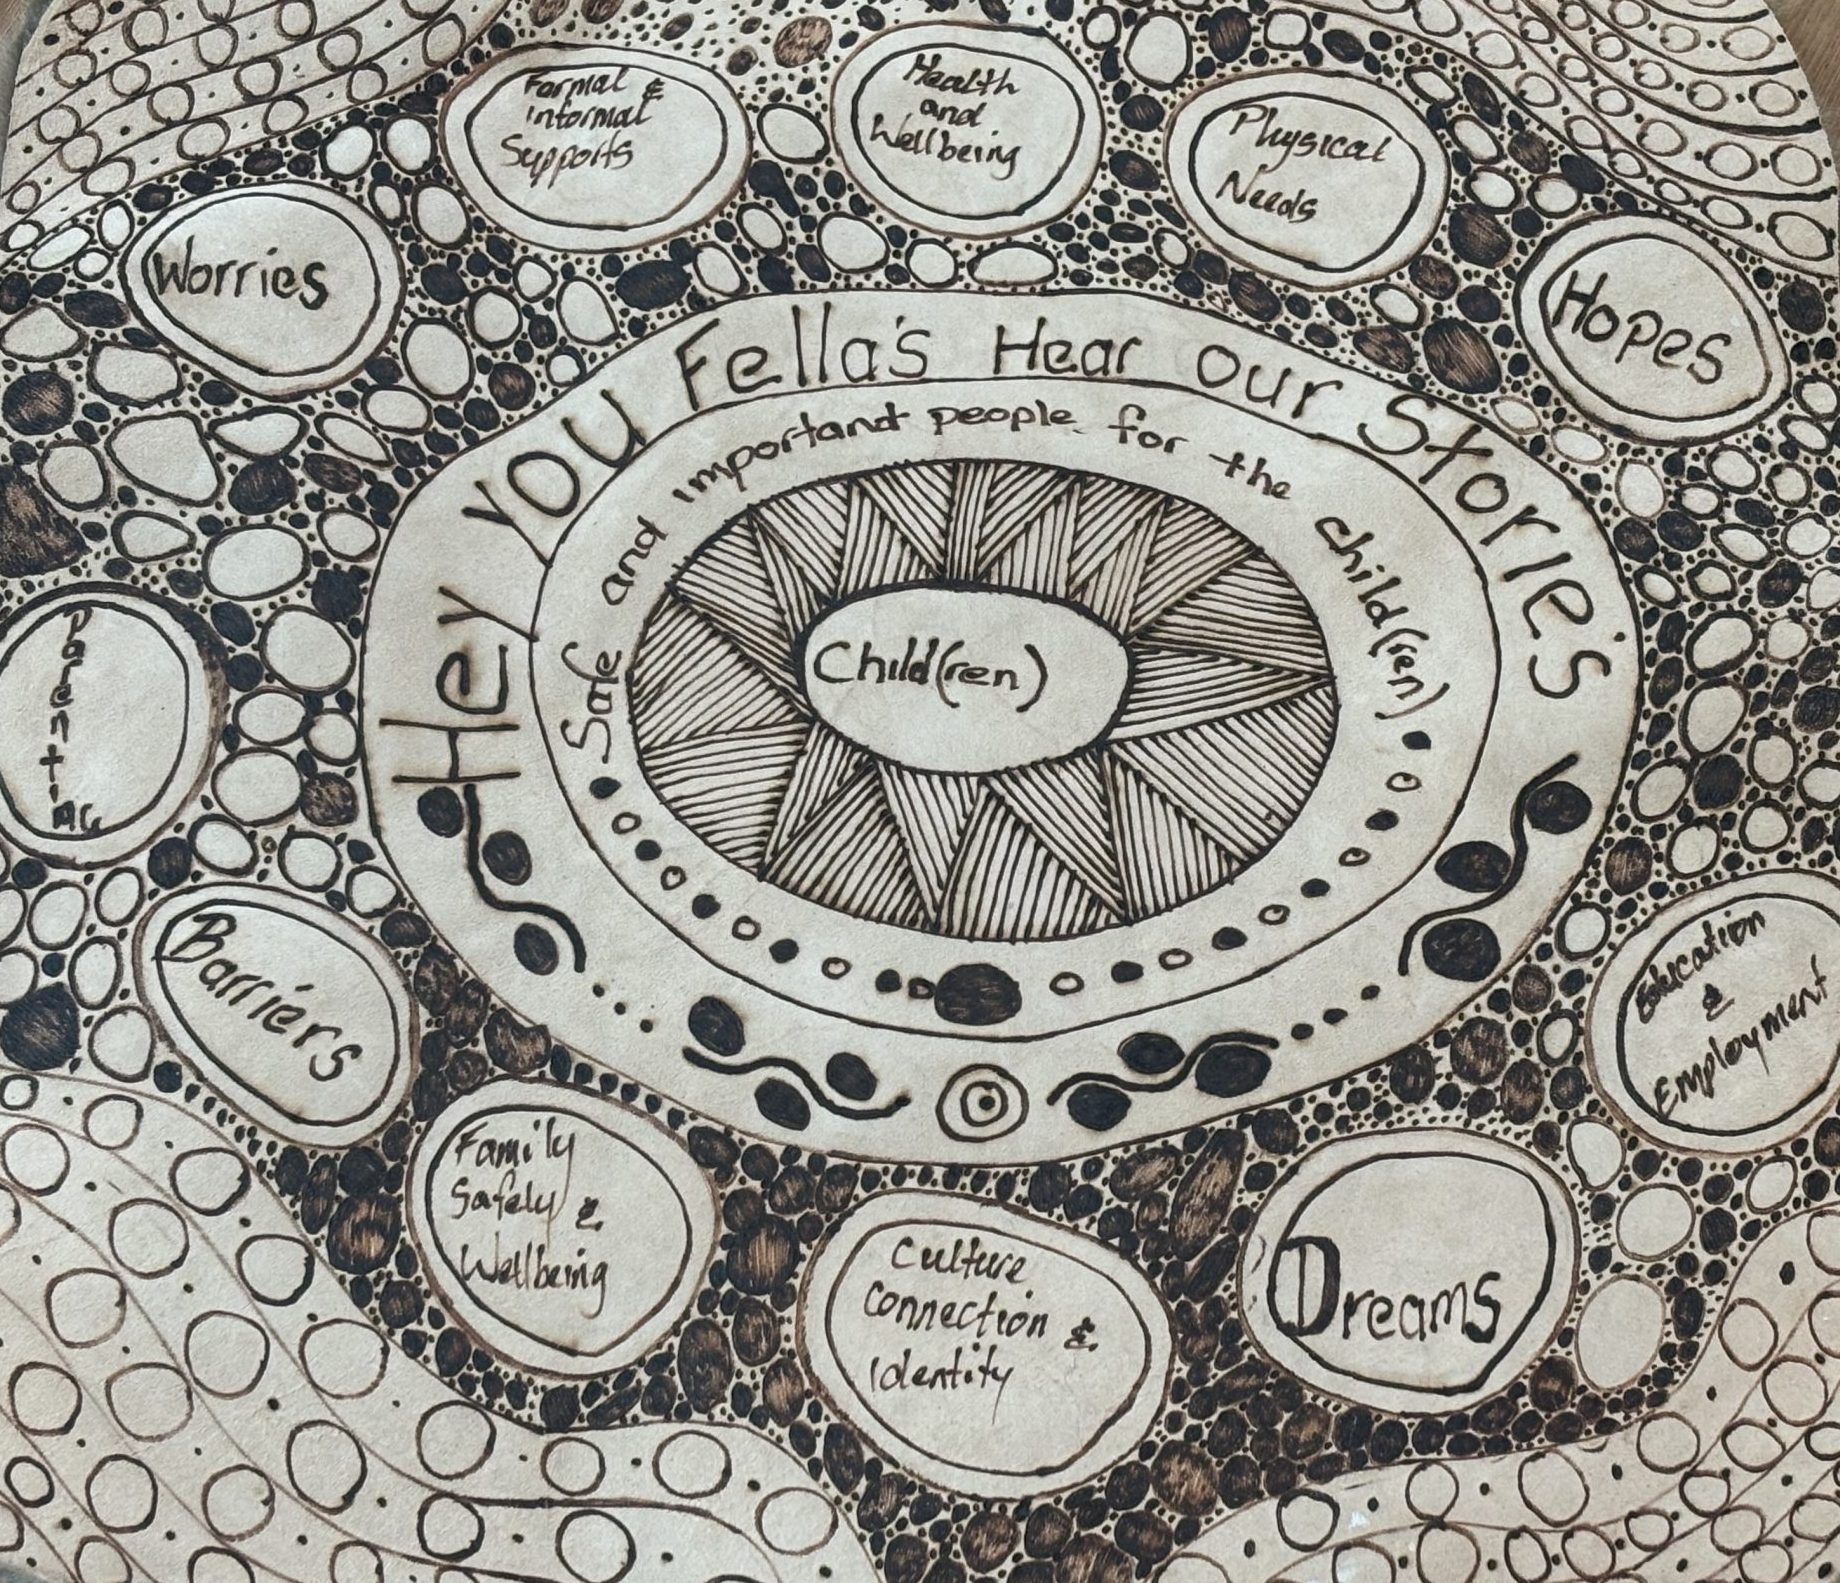 Formal &
informal
Supports
Health
and
Wellbeing
Physical
Needs
Worries
Hopes
Hey you Fella's Hear our Storie's
Safe and importand people for the child(ren)
Child(ren)
Parenting
Barriers
Education
&
Employment
Family
Safely &
Wellbeing
Culture
Connection &
Identity
Dreams